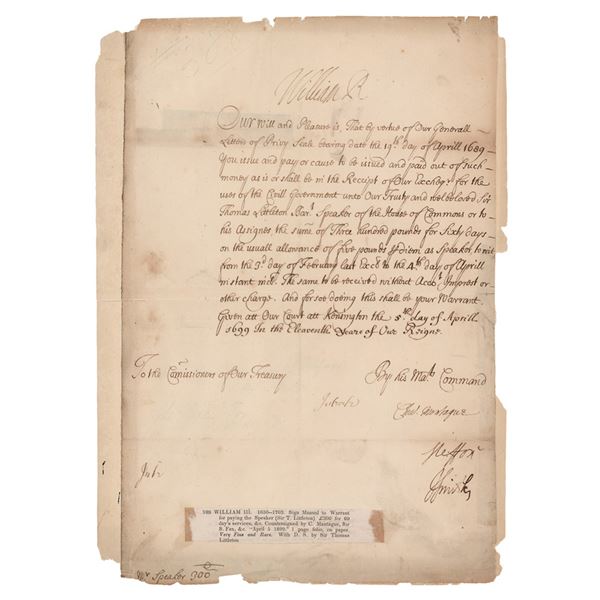 William R
Our Will and Pleasure is, That by vertue of Our Generall
Letters of Privy Seale bearing date the 19th day of Aprill 1689
You issue and pay or cause to be issued and paid out of such
money as is or shall be in the Receipt of Our Excheqr for the
uses of the Civill Government unto Our Trusty and welbeloved Sir
Thomas Littleton Bart Speaker of the House of Commons or to
his Assignes the sume of Three hundred pounds for Sixty days
on the usuall allowance of five pounds P diem as Speaker to wit
from the 3d day of February last to the 4th day of Aprill
instant The same to be received without Accot Imprest or
other charge. And for soe doing this shall be your Warrant
Given att Our Court att Kensington the 5th day of Aprill
1699 In the Eleaventh Yeare of Our Reigne
To the Comissioners of Our Treasury
By his Mats Command
Montague
Mr Speaker 300
WILLIAM III. 1650–1702. Sign Manual to Warrant
for paying the Speaker (Sir T. Littleton) £300 for 60
day's services, &c. Countersigned by C. Montague, Sir
S. Fox, &c. "April 5 1699." 1 page folio, on paper,
Very Fine and Rare. With D. S. by Sir Thomas
Littleton